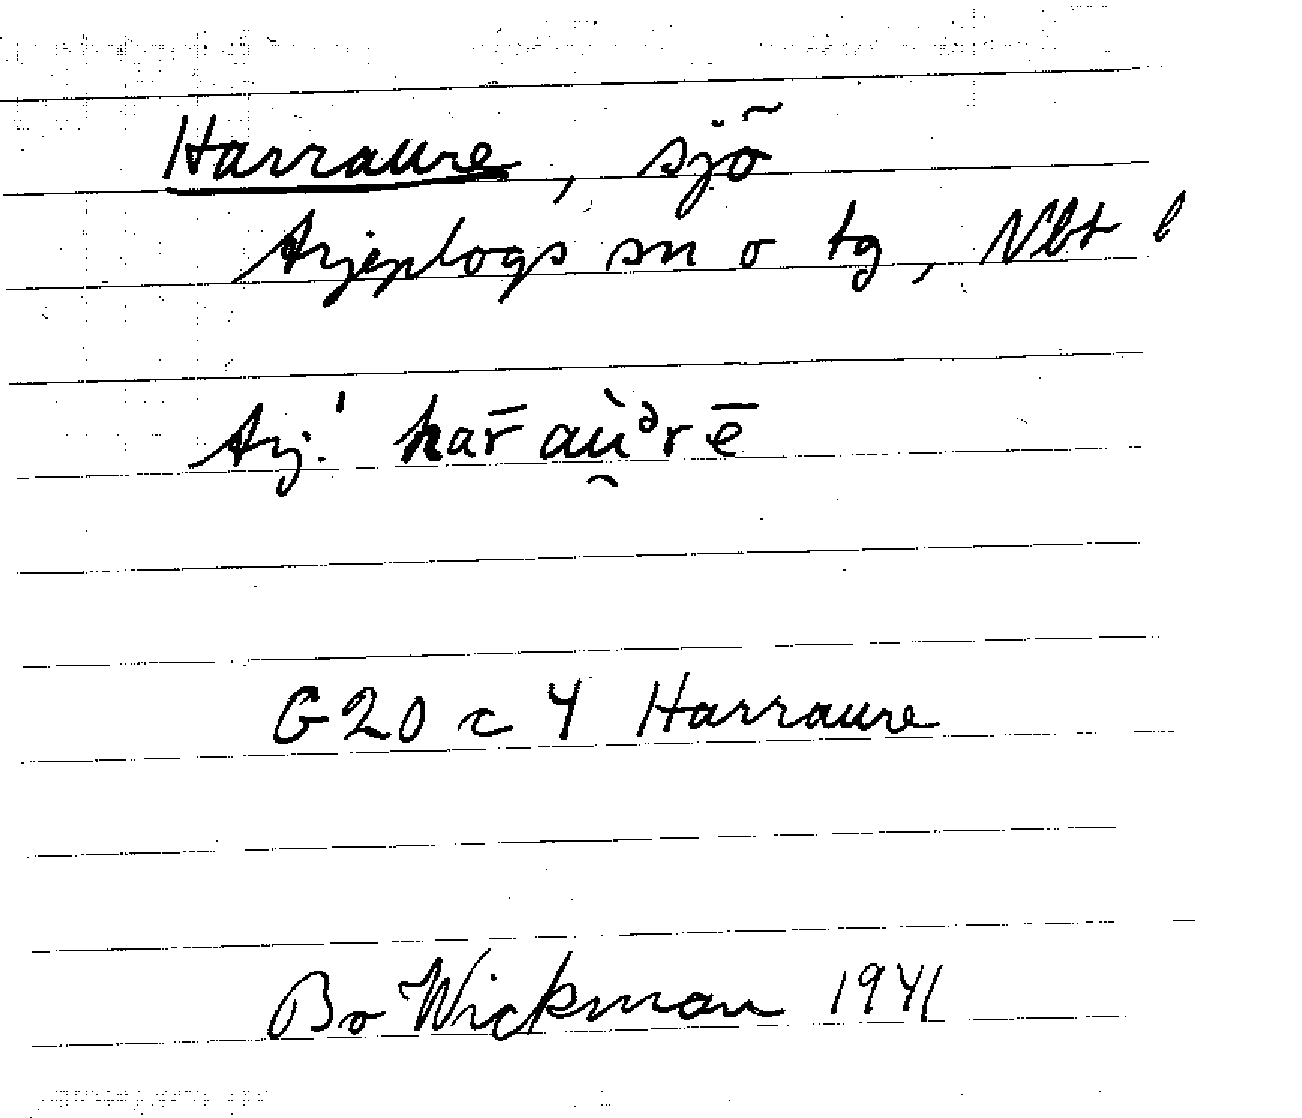 Harraure, sjö
Arjeplogs sn o tg, Nbt l
Arj.' har̄aù̯ᵊrē
G20 c 4 Harraure
Bo Wickman 1941